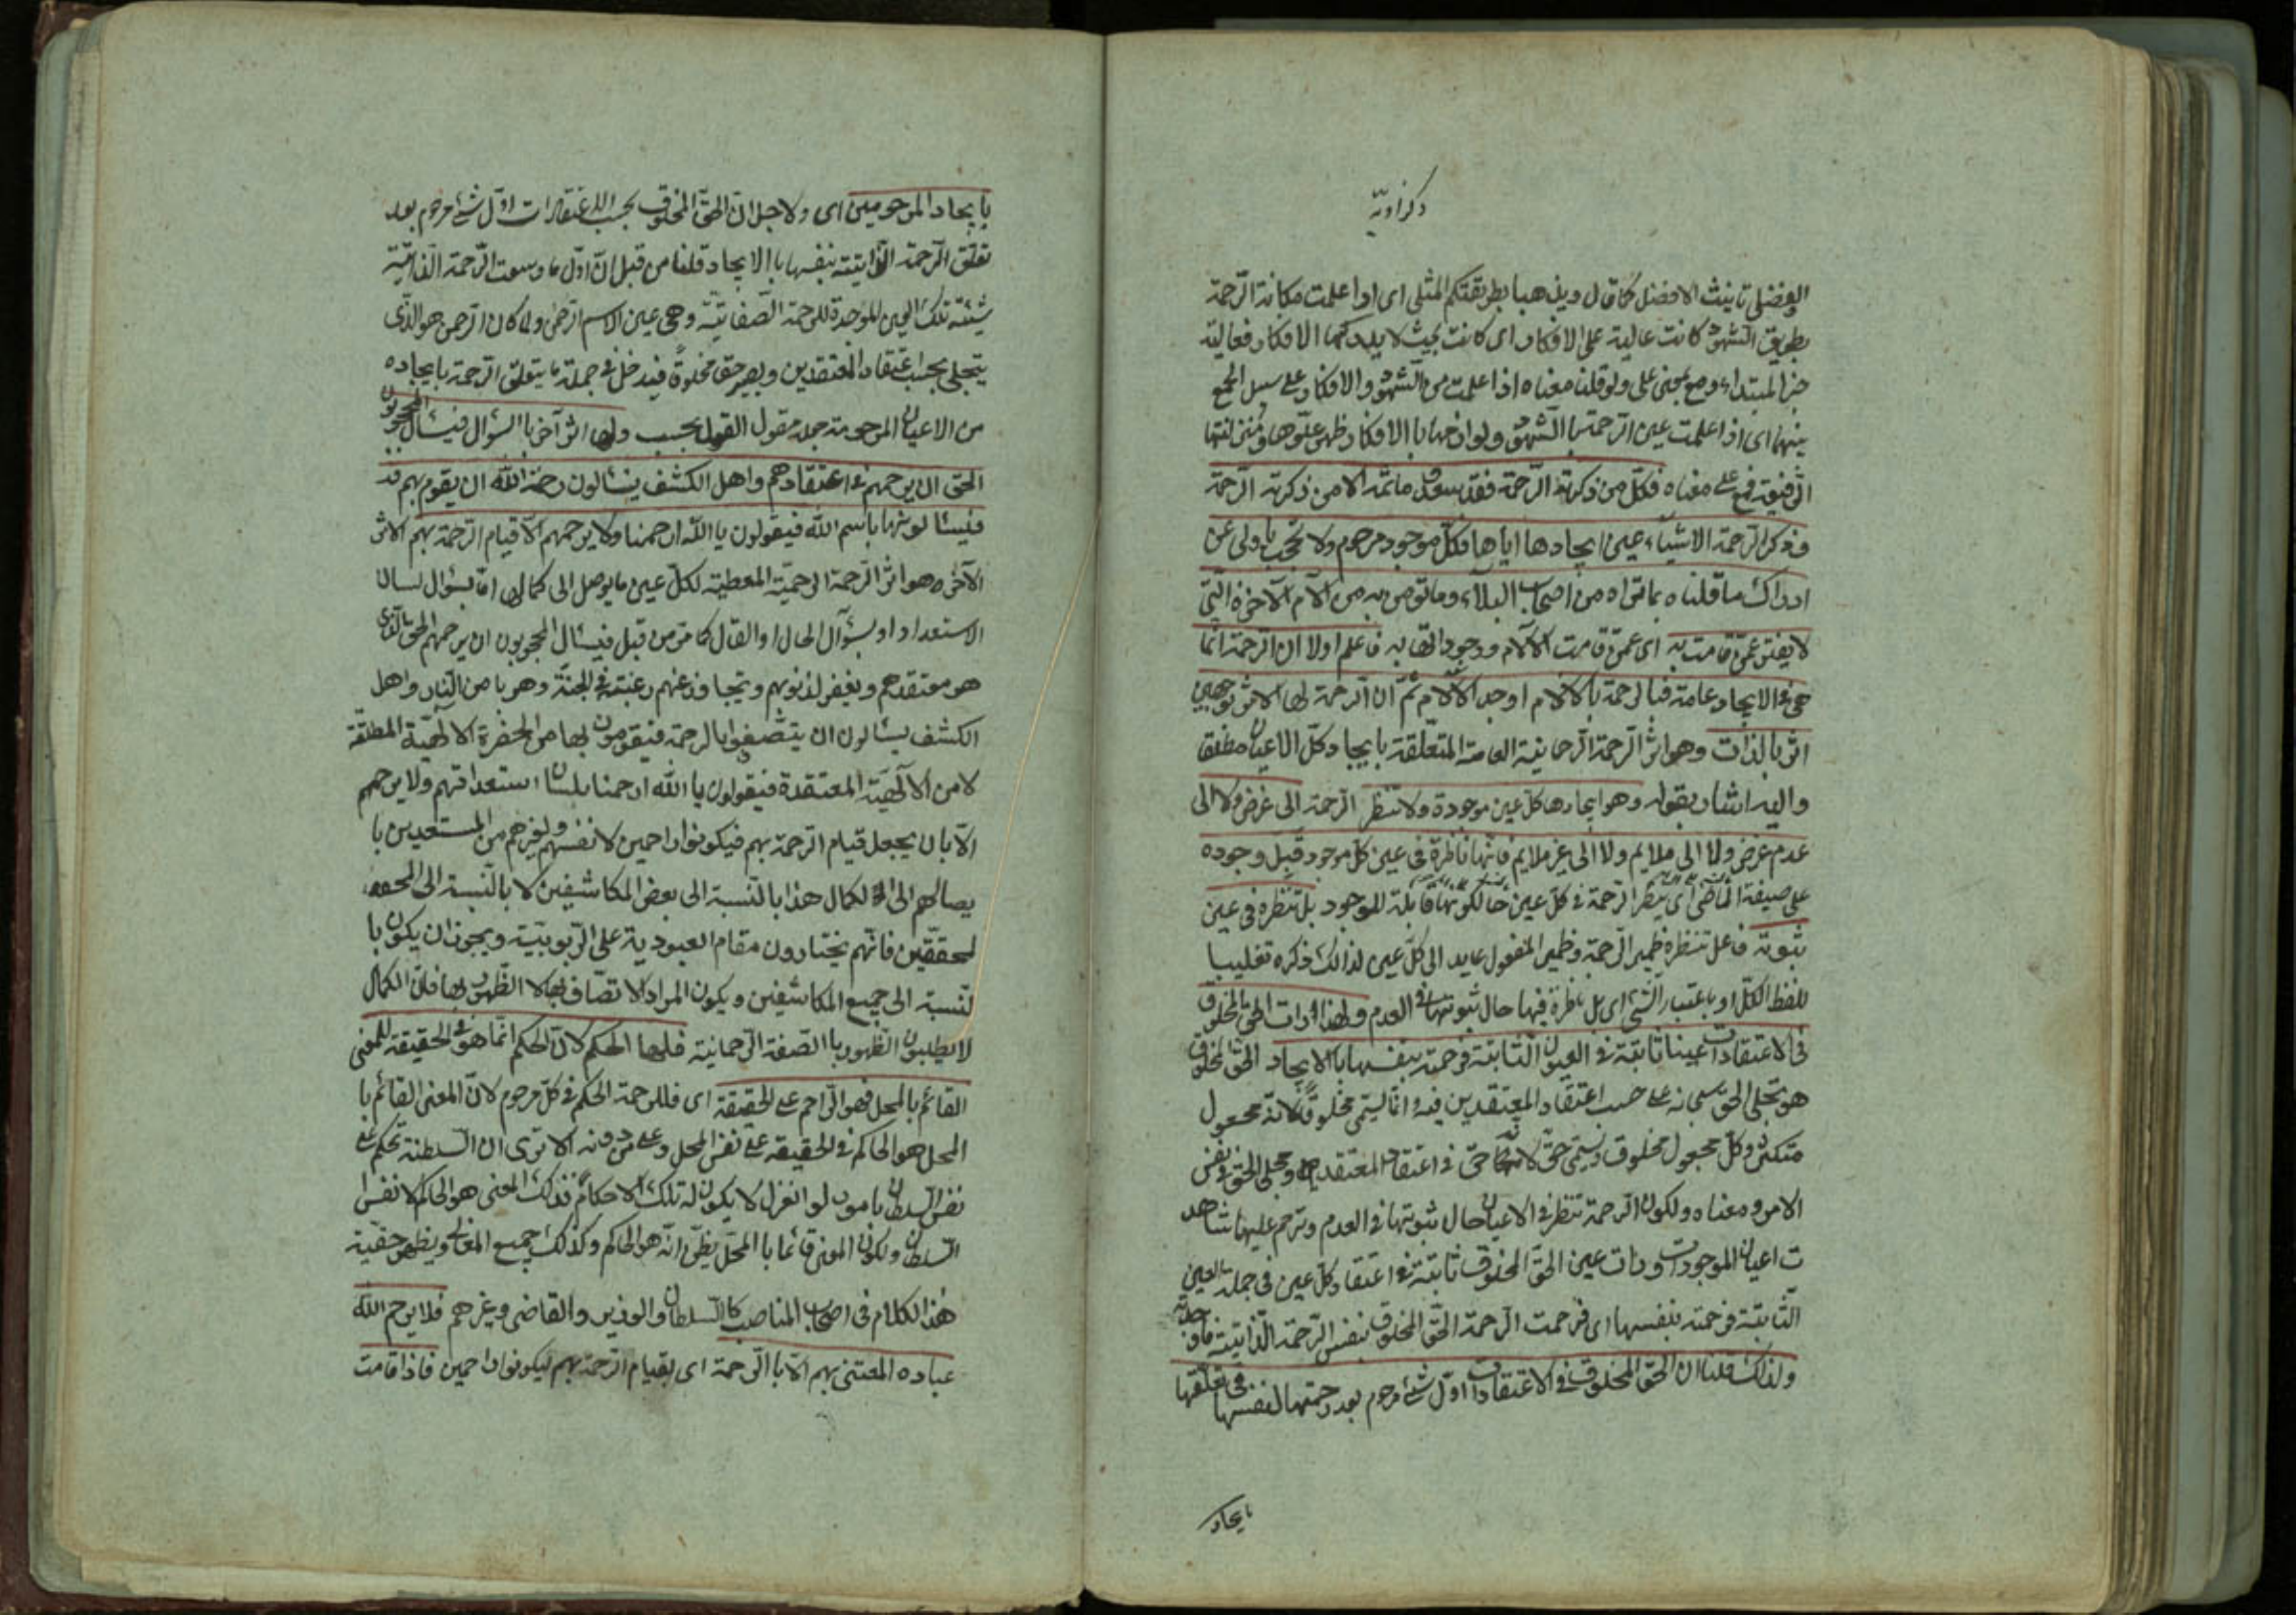 ذكراويّه
الفضلى تانيث الافضل كما قال ويذهبا بطريقتكم المثلى اى اذا علمت مكانة الرّحمة
بطريق الشهود كانت عالية على الافكار اى كانت بحيث لا يدركها الافكار فعالية
خبر المبتداء ومع بمعنى على ولو قلنا معناه اذا علمت من الشهود والافكار على سبيل الجمع
بينهما اى اذا علمت عين الرحمة بالشهود ولوازمها با الافكار ظهر علوّها ومنزلتها
الرفيعة فمع على معناه فكلّ من ذكرته الرّحمة فقد سعد وما ثمّة الا من ذكرته الرّحمة
وذكر الرّحمة الاشياء عين ايجادها اياها فكلّ موجود مرحوم ولا تحجب يا ولى عن
ادراك ما قلناه بما تراه من اصحاب البلاء وما تؤمن به من آلام الآخرة التى
لا يفتر عمّن قامت به اى عمّن قامت الآلام ووجودها به فاعلم اولا ان الرّحمة انما
هى فى الايجاد عامة فبالرحمة بالآلام اوجد الآلام ثمّ ان الرّحمة لها الاثر بوجهين
اثر بالذات وهو اثر الرّحمة الرّحمانية العامة المتعلّقة بايجاد كلّ الاعيان مطلقا
واليه اشار بقوله وهو ايجادها كلّ عين موجودة ولا تنظر الرّحمة الى غرض ولا الى
عدم غرض ولا الى ملايم ولا الى غير ملايم فانّها ناظرة فى عين كلّ موجود قبل وجوده
على صيغة الماضى اى ينظر الرّحمة فى كلّ عين حالكونها قابلة للوجود بل تنظره فى عين
ثبوته فاعل تنظره ضمير الرّحمة وضمير المفعول عايد الى كلّ عين لذالك ذكره تغليبا
للفظ الكلّ او باعتبار الشّئ اى بل ناظرة فيها حال ثبوتها فى العدم ولهذا رات الحق المخلوق
فى الاعتقادات عينا ثابتة فى العيون الثابتة فرحمته بنفسها با الايجاد الحقّ المخلوق
هو تجلى الحقّ سبحانه على حسب اعتقاد المعتقدين فيه وانما ليسمّى مخلوقا لانّه مجعول
متكثّر وكلّ مجعول مخلوق ويسمّى حقّا لانّه حقّ فى اعتقاد المعتقد ومجلى الحقّ فى نفس
الامر ومعناه ولكون الرّحمة تنظر فى الاعيان حال ثبوتها فى العدم وترحم عليها شاهد
ت اعيان الموجودات ورات عين الحقّ المخلوق ثابتة فى اعتقاد كلّ عين فى جملة العين
الثّابتة فرحمته بنفسها اى فرحمت الرّحمة الحقّ المخلوق بنفس الرّحمة الذّاتية فاوجدته
ولذلك قلنا ان الحقّ المخلوق فى الاعتقادات اوّل شئ مرحوم بعد رحمتها لنفسها فى تعلّقها
بايجاد
بايجاد المرحومين اى ولاجل ان الحقّ المخلوق بحسب الاعتقادات اوّل شئ مرحوم بعد
تعلّق الرّحمة الذّاتيّة بنفسها با الايجاد قلنا من قبل انّ اوّل ما وسعت الرّحمة الذاتيّة
شيئيّة تلك العين الموجدة للرحمة الصّفاتيّة وهى عين الاسم الرّحمن ولما كان الرّحمن هو الذّى
يتجلى بحسب اعتقاد المعتقدين ويصير حقا مخلوقا فيدخل فى جملة ما يتعلّق الرّحمة بايجاده
من الاعيان المرحومة جملة مقول القول بحسب ولها اثر آخر با السؤال فيسأل المحجوبون
الحقّ ان يرحمهم فى اعتقادهم واهل الكشف يسألون رحمة الله ان يقوم بهم قد
فيسألونها باسم الله فيقولون يا الله ارحمنا ولا يرحمهم الا قيام الرّحمة بهم الاثر
الآخر هو اثر الرّحمة الرحيميّة المعطية لكلّ عين ما يوصل الى كمالها امّا بسؤال لسان
الاستعداد او بسؤال الحال او القال كما مرّ من قبل فيسأل المحجوبون ان يرحمهم الحق الذى
هو معتقدهم ويغفر لذنوبهم ويتجاوز عنهم رغبته فى الجنّة وهربا من النّار واهل
الكشف يسألون ان يتصفوا بالرحمة فيقومون بها من الحضرة الالهيّة المطلقة
لا من الالهيّة المعتقدة فيقولون يا الله ارحمنا بلسان استعداداتهم ولا يرحمهم
الّا بان يجعل قيام الرّحمة بهم فيكونوا راحمين لانفسهم ولغيرهم من المستعدين با
يصالهم الى الكمال هذا بالنّسبة الى بعض المكاشفين لا بالنّسبة الى المحقق
لمحققين فانّهم يختارون مقام العبودية على الرّبوبيّة ويجوز ان يكون با
لنّسبة الى جميع المكاشفين ويكون المراد الاتصاف بها لا الظّهور بها فانّ الكمال
لا يطلبون الظهور با الصّفة الرّحمانية فلها الحكم لانّ الحكم انّما هو فى الحقيقة للمعنى
القائم بالمحل فهو الرّاحم على الحقيقة اى فللرحمة الحكم فى كلّ مرحوم لانّ المعنى القائم با
المحل هو الحاكم فى الحقيقة على نفس المحل وعلى من دونه الا ترى ان السّلطنة تحكم على
نفس السلطان بامور لو انعزل لا يكون له تلك الاحكام فذلك المعنى هو الحاكم لا نفس
السّلطان ولكون المعنى قائما با المحلّ يظنّ انّه هو الحاكم وكذلك جميع المعانى ويظهر حقيّة
هذا الكلام فى اصحاب المناصب كالسّلطان والوزير والقاضى وغيرهم فلا يرحم الله
عباده المعتنى بهم الّا با الرّحمة اى بقيام الرّحمة بهم ليكونوا راحمين فاذا قامت